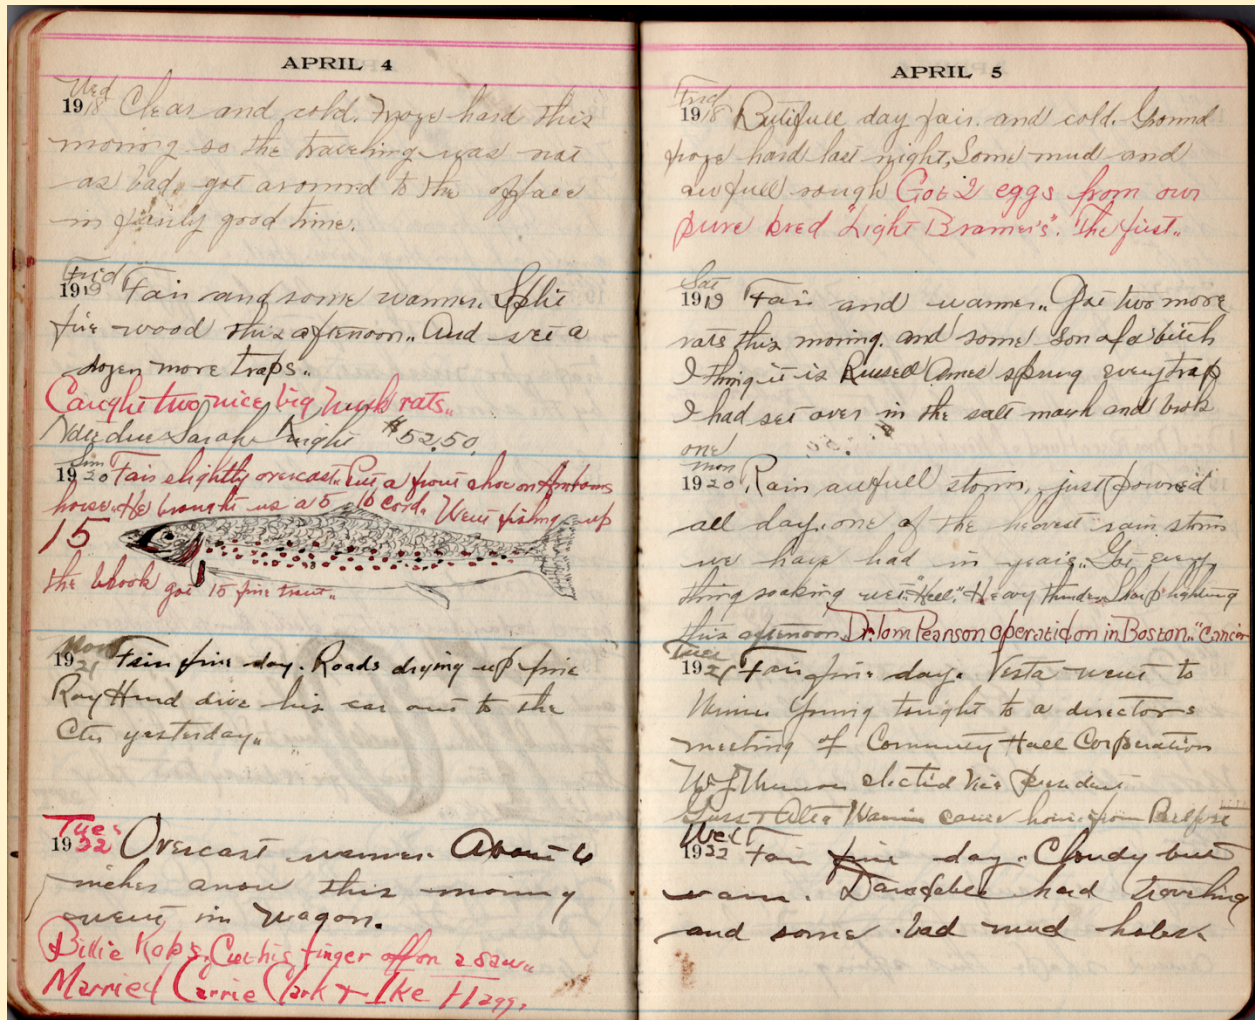 APRIL 4
Wed
1918 Clear and cold. Froze hard this
moring so the traveling was not
as bad,, got around to the offace
in fairly good time.
Frid
1919 Fair and some warmer. Split
fire wood this afternoon,, And set a
dozen more traps,,
Caught two nice big Musk rats,,
Note due Sarah Knight $52,50,
Sun
1920 Fair slightly overcast,, Put a front shoe on
horse. He brought us a 5 lb cord. Went fishing up
15
the bbook got 15 fine trout,,
Mon
1921 Fair fine day. Roads drying up fine
Ray Hurd dive his car out to the
Ctr yesterday,,
Tue.
1922 Overcast warmer. About 6
inches snow this moring
went in wagon.
Billie Kobs, Cut his finger off on a saw,,
Married Carrie Clark & Ike Flagg,
APRIL 5
Frid
1918 Butifull day fair. and cold. Ground
froze hard last night, Some mud and
awfull rough Got 2 eggs from our
pure bred "Light Bramer's". The first,,
Sat
1919 Fair and warmer,, Got two more
rats this moring. and some son of a bitch
I thing it is Russell Ames sprung every trap
I had set over in the salt marsh and took
one
mon
1920 Rain awfull storm, just powred
all day. one of the hevest rain storm
we have had in years,, Got every
thing soaking wet,, "Hell". Heavy thunder Sharp lighting
this afternoon. Dr. Tom Pearson operatidon in Boston,, "Cancer
Tues
1921 Fair fine day. Vista went to
Young tonight to a directors
meeting of Community Hall Corperation
elected Vice
came home from Belfast
Wed
1922 Fair fine day. Cloudy but
warm. hard traveling
and some bad mud holes